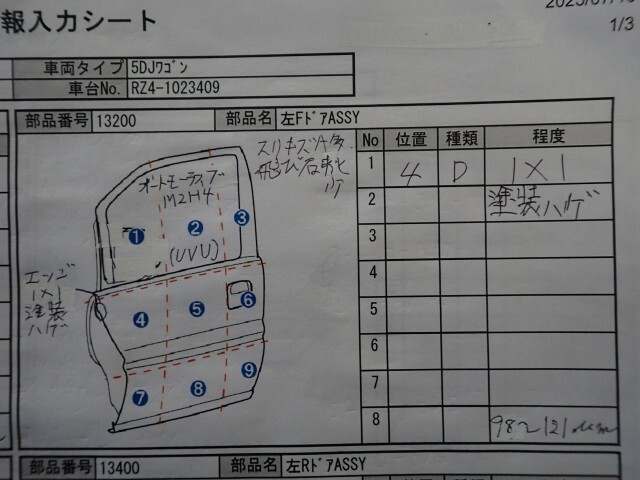 報入力シート
1/3
車両タイプ 5DJワゴン
車台No. RZ4-1023409
部品番号 13200 部品名 左FドアASSY
スリキズ小多
飛び石
オートモーティブ
M2H4
(UVU)
エンブ
1×1
塗装
ハゲ
① ② ③
④ ⑤ ⑥
⑦ ⑧ ⑨
No 位置 種類 程度
1 4 D 1×1
2 塗装ハゲ
3
4
5
6
7
8 98~121μm
部品番号 13400 部品名 左RドアASSY